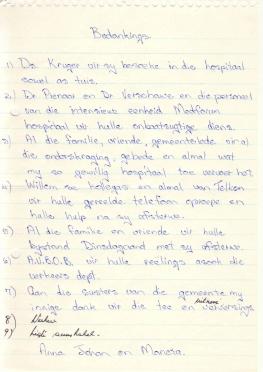 Bedankings.
1) Ds. Kruger vir sy besoeke in die hospitaal
sowel as tuis.
2) Dr Pienaar en Dr Verschawe en die personeel
van die intensiewe eenheid Medforum
hospitaal vir hulle onbaatsugtige diens.
3) Al die familie, vriende, gemeentelede vir al
die ondersteuning, gebede en almal wat
my so gewillig hospitaal toe vervoer het.
4) Willem se kollegas en almal van Telkom
vir hulle gereelde telefoon oproepe en
hulle hulp na sy afsterwe.
5) Al die familie en vriende vir hulle
bystand Dinsdagaand met sy afsterwe.
6) A.V.B.O.B. vir hulle reëlings asook die
verkeers dept.
7) Aan die susters van die gemeente my
innige dank vir die tee en verversings
8)
9)
Anna Johan en Manesa.